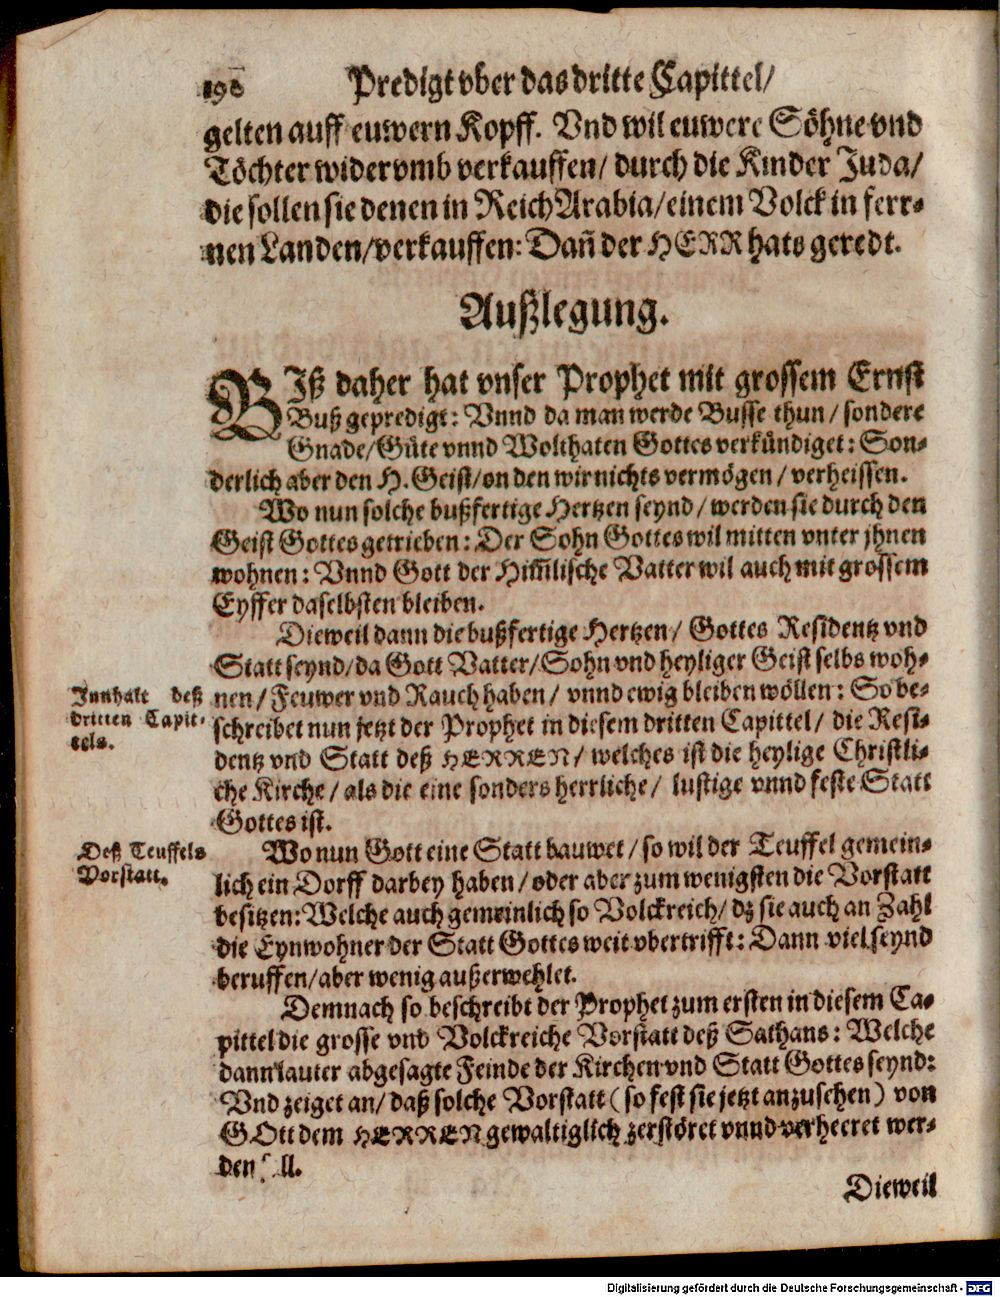 198 Predigt vber das dritte Capittel/
gelten auff euwern Kopff. Vnd wil euwere Söhne vnd
Töchter widervmb verkauffen/ durch die Kinder Juda/
die sollen sie denen in Reich Arabia/ einem Volck in ferr-
nen Landen/ verkauffen: Dañ der HERR hats geredt.
Außlegung.
BIß daher hat vnser Prophet mit grossem Ernst
Buß gepredigt: Vnnd da man werde Busse thun/ sondere
Gnade/ Güte vnnd Wolthaten Gottes verkündiget: Son-
derlich aber den H. Geist/ on den wir nichts vermögen/ verheissen.
Wo nun solche bußfertige Hertzen seynd/ werden sie durch den
Geist Gottes getrieben: Der Sohn Gottes wil mitten vnter jhnen
wohnen: Vnnd Gott der Him̃lische Vatter wil auch mit grossem
Eyffer daselbsten bleiben.
Dieweil dann die bußfertige Hertzen/ Gottes Residentz vnd
Statt seynd/ da Gott Vatter/ Sohn vnd heyliger Geist selbs woh-
Jnnhalt deß
dritten Capit-
tels.
nen/ Feuwer vnd Rauch haben/ vnnd ewig bleiben wöllen: So be-
schreibet nun jetzt der Prophet in diesem dritten Capittel/ die Resi-
dentz vnd Statt deß HERREN/ welches ist die heylige Christli-
che Kirche/ als die eine sonders herrliche/ lustige vnnd feste Statt
Gottes ist.
Deß Teuffels
Vorstatt.
Wo nun Gott eine Statt bauwet/ so wil der Teuffel gemein-
lich ein Dorff darbey haben/ oder aber zum wenigsten die Vorstatt
besitzen: Welche auch gemeinlich so Volckreich/ dz sie auch an Zahl
die Eynwohner der Statt Gottes weit vbertrifft: Dann viel seynd
beruffen/ aber wenig außerwehlet.
Demnach so beschreibt der Prophet zum ersten in diesem Ca-
pittel die grosse vnd Volckreiche Vorstatt deß Sathans: Welche
dann lauter abgesagte Feinde der Kirchen vnd Statt Gottes seynd:
Vnd zeiget an/ daß solche Vorstatt (so fest sie jetzt anzusehen) von
GOtt dem HERREN gewaltiglich zerstöret vnnd verheeret wer-
den soll.
Dieweil
Digitalisierung gefördert durch die Deutsche Forschungsgemeinschaft - DFG